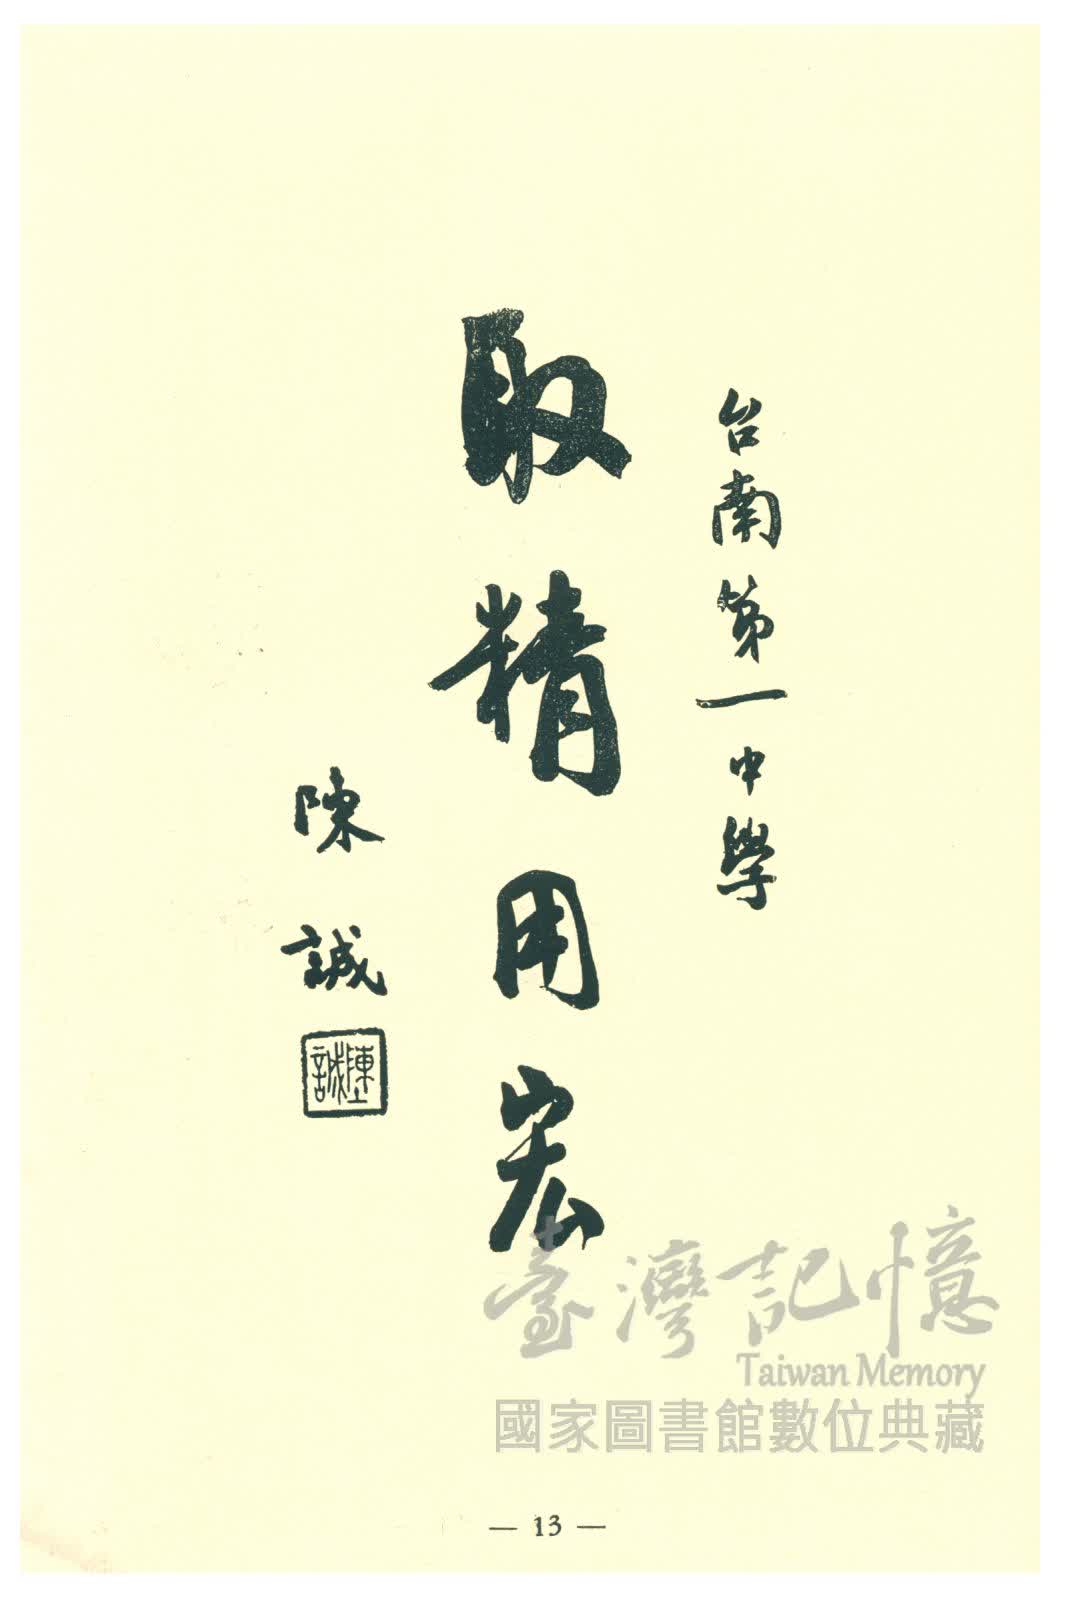 台南第一中學
取精用宏
陳誠
陳誠
臺灣記憶
Taiwan Memory
國家圖書館數位典藏
— 13 —